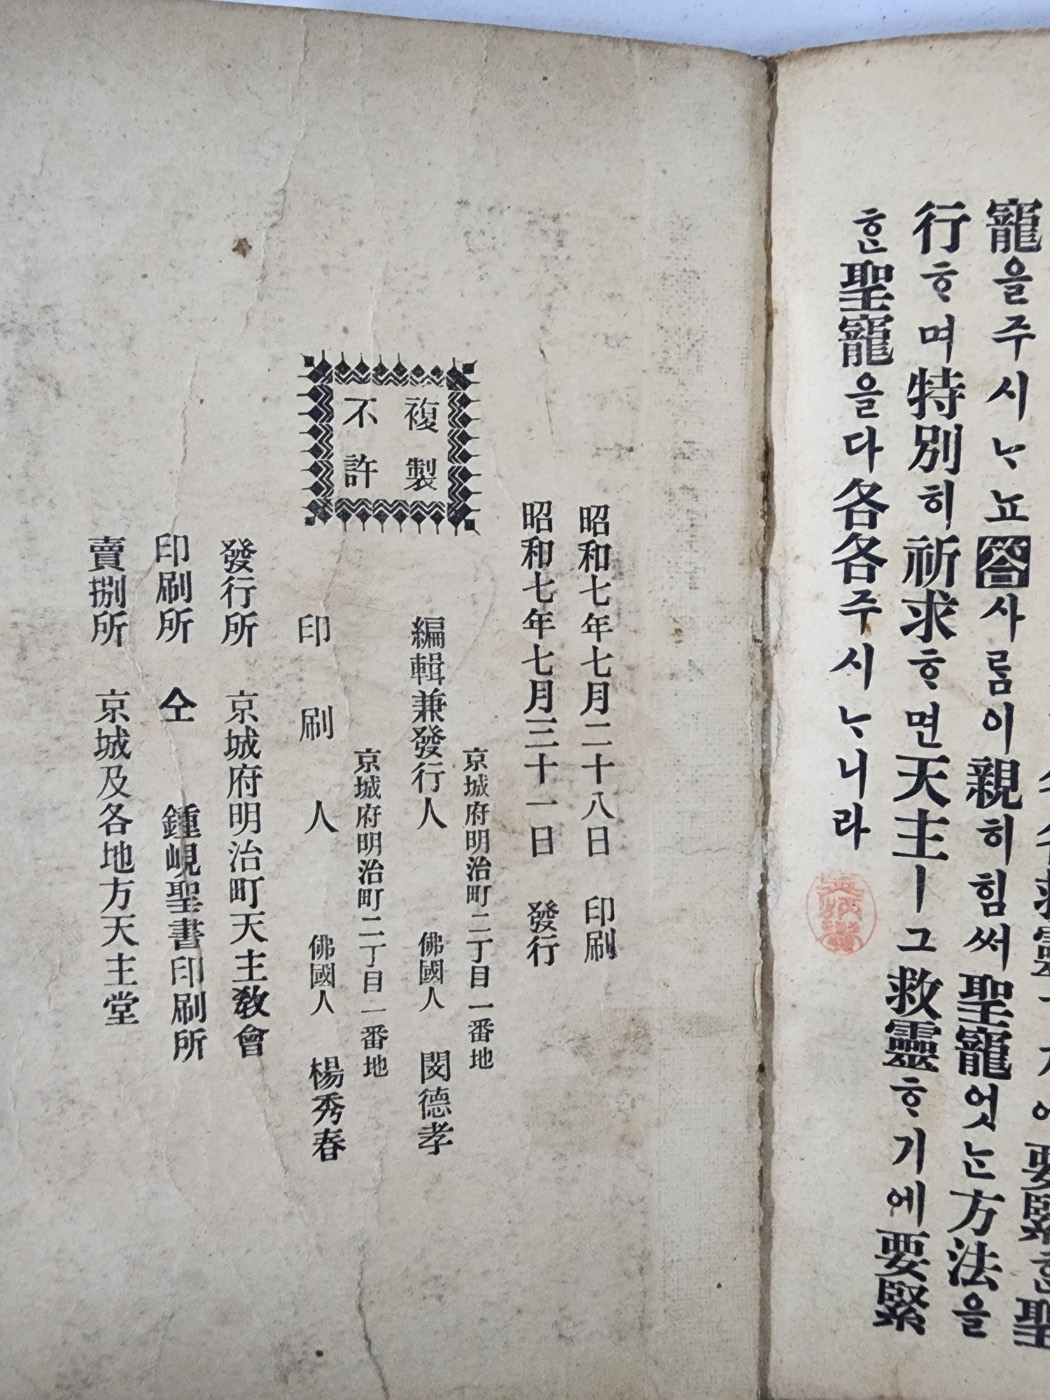 要緊ᄒᆞᆫ聖
寵을주시ᄂᆞ뇨答사ᄅᆞᆷ이親히힘써聖寵엇ᄂᆞᆫ方法을
行ᄒᆞ며特別히祈求ᄒᆞ면天主ㅣ그救靈ᄒᆞ기에要緊
ᄒᆞᆫ聖寵을다各各주시ᄂᆞ니라
昭和七年七月二十八日 印刷
昭和七年七月三十一日 發行
複製
不許
京城府明治町二丁目一番地
編輯兼發行人 佛國人 閔德孝
京城府明治町二丁目一番地
印刷人 佛國人 楊秀春
發行所 京城府明治町天主敎會
印刷所 仝 鍾峴聖書印刷所
賣捌所 京城及各地方天主堂